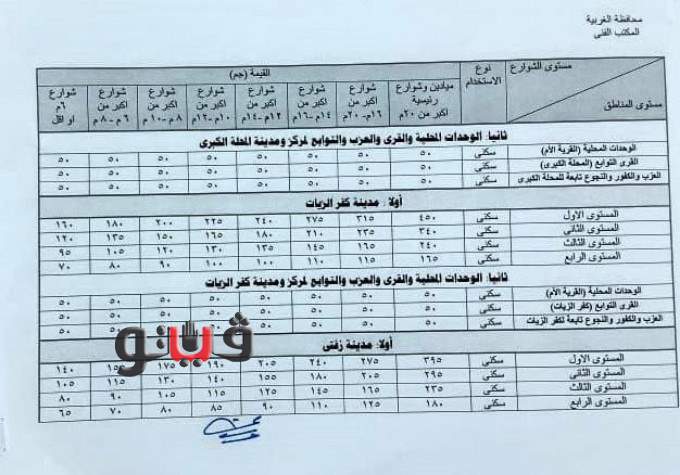 محافظة الغربية
المكتب الفنى
مستوى الشوارع
مستوى المناطق
نوع الاستخدام
القيمة (جم)
ميادين وشوارع رئيسية اكبر من ٢٠م
شوارع اكبر من ١٦م-٢٠م
شوارع اكبر من ١٤م-١٦م
شوارع اكبر من ١٢م-١٤م
شوارع اكبر من ١٠م-١٢م
شوارع اكبر من ٨م-١٠م
شوارع اكبر من ٦م-٨م
شوارع ٦م او اقل
ثانيا: الوحدات المحلية والقرى والعزب والتوابع لمركز ومدينة المحلة الكبرى
الوحدات المحلية (القرية الأم) سكنى ٥٠ ٥٠ ٥٠ ٥٠ ٥٠ ٥٠ ٥٠ ٥٠
القرى التوابع (المحلة الكبرى) سكنى ٥٠ ٥٠ ٥٠ ٥٠ ٥٠ ٥٠ ٥٠ ٥٠
العزب والكفور والنجوع تابعة للمحلة الكبرى سكنى ٥٠ ٥٠ ٥٠ ٥٠ ٥٠ ٥٠ ٥٠ ٥٠
أولا: مدينة كفر الزيات
المستوى الاول سكنى ٤٥٠ ٣١٥ ٢٧٥ ٢٤٠ ٢٢٥ ٢٠٠ ١٨٠ ١٦٠
المستوى الثانى سكنى ٣٤٠ ٢٣٥ ٢١٠ ١٨٠ ١٦٥ ١٥٠ ١٣٥ ١٢٠
المستوى الثالث سكنى ٢٤٠ ١٦٥ ١٤٥ ١٣٥ ١٣٠ ١٢٠ ١٠٥ ٩٥
المستوى الرابع سكنى ١٦٥ ١١٥ ١١٠ ١٠٠ ١٠٠ ٩٠ ٨٠ ٧٠
ثانيا: الوحدات المحلية والقرى والعزب والتوابع لمركز ومدينة كفر الزيات
الوحدات المحلية (القرية الأم) سكنى ٥٠ ٥٠ ٥٠ ٥٠ ٥٠ ٥٠ ٥٠ ٥٠
القرى التوابع (كفر الزيات) سكنى ٥٠ ٥٠ ٥٠ ٥٠ ٥٠ ٥٠ ٥٠ ٥٠
العزب والكفور والنجوع تابعة لكفر الزيات سكنى ٥٠ ٥٠ ٥٠ ٥٠ ٥٠ ٥٠
ڤيتو
أولا: مدينة زفتى
المستوى الاول سكنى ٣٩٥ ٢٧٥ ٢٤٠ ٢٠٥ ١٩٠ ١٧٥ ١٤٠
المستوى الثانى سكنى ٢٩٥ ٢٠٥ ١٨٠ ١٥٥ ١٤٠ ١٣٠ ١١٥ ١٠٥
المستوى الثالث سكنى ٢٣٥ ١٦٥ ١٤٥ ١٢٥ ١١٥ ١٠٥ ٩٠ ٨٠
المستوى الرابع سكنى ١٨٠ ١٢٥ ١١٠ ٩٠ ٨٥ ٨٠ ٧٠ ٦٥